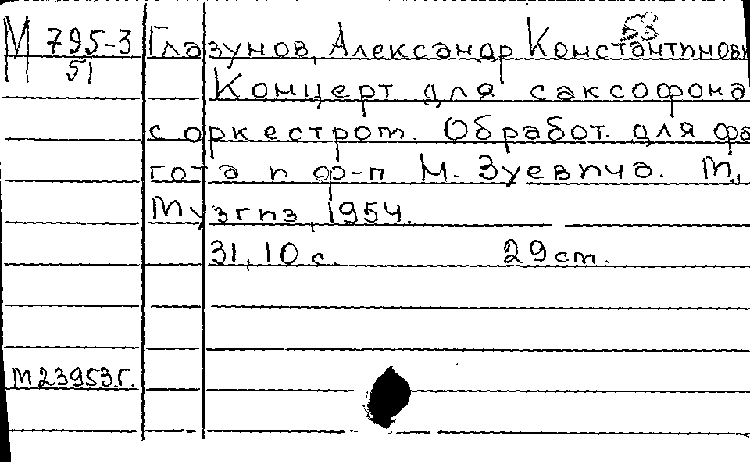 53
М 795-3 Глазунов, Александр Константинови
51
Концерт для саксофона
с оркестром. Обработ. для фа
гота и ф-п М. Зуевича. М,
Музгиз, 1954.
31, 10 с. 29 cm.
М23953г.